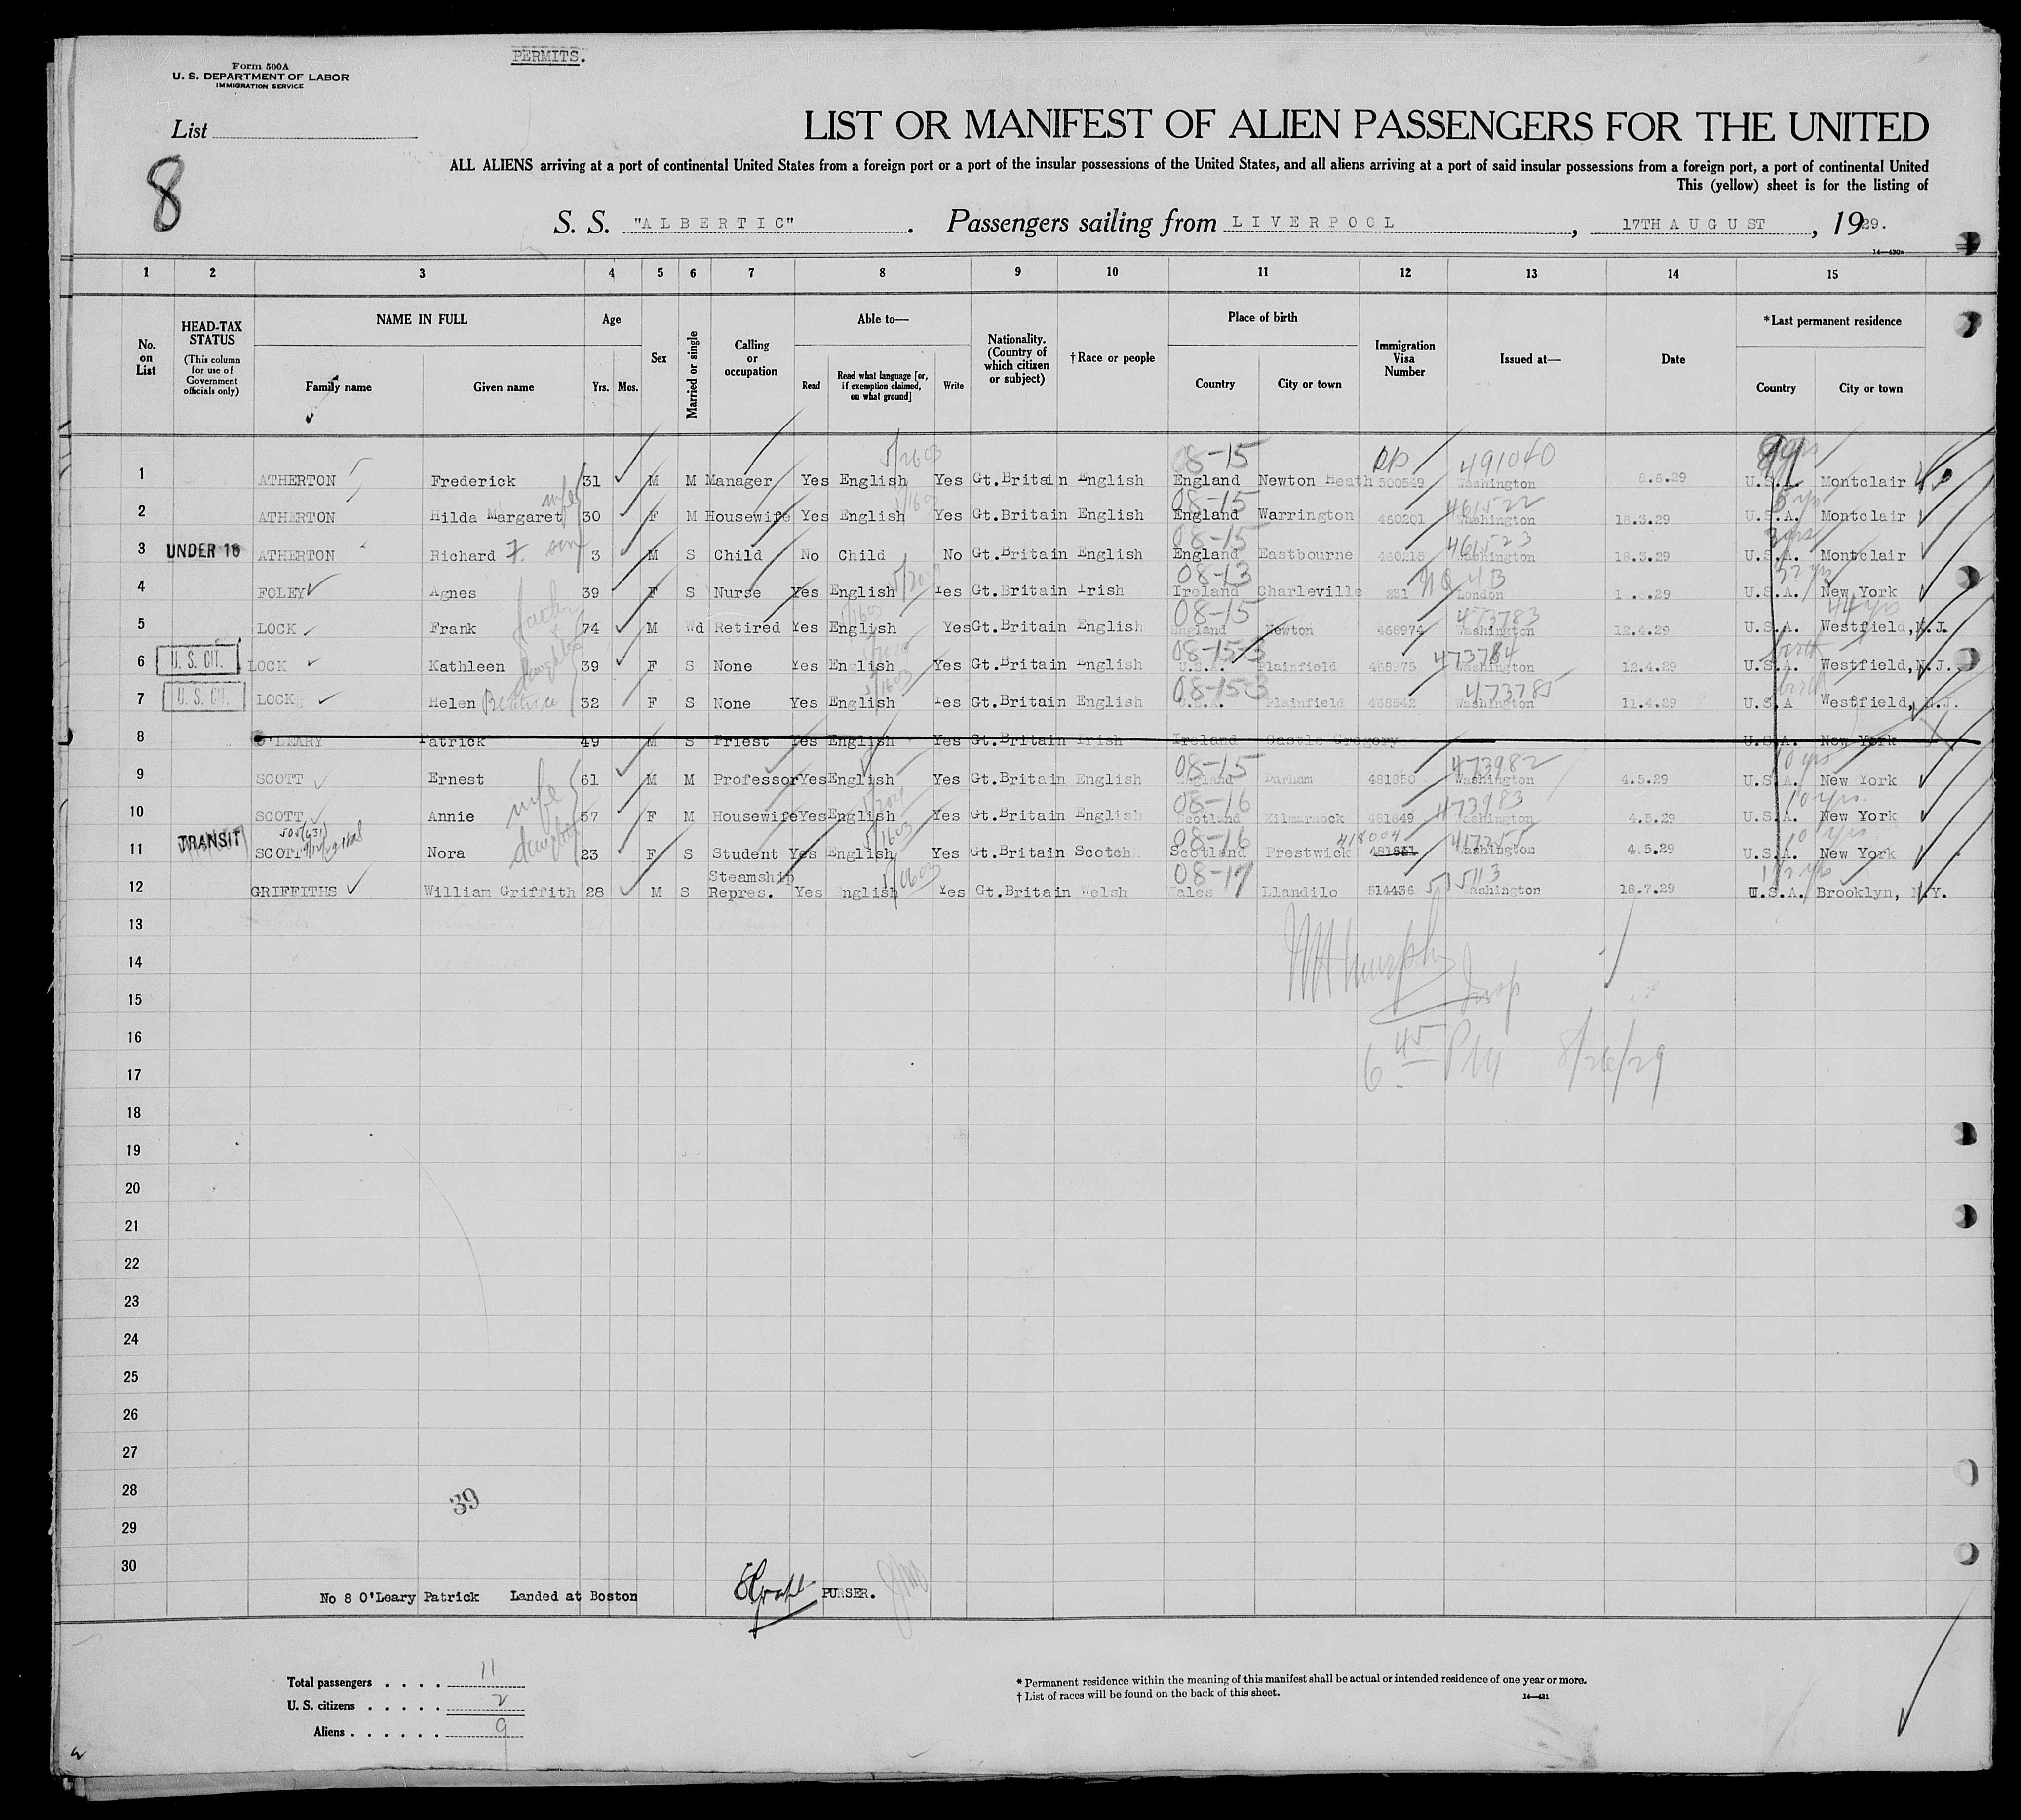 PERMITS.
Form 500A
U. S. DEPARTMENT OF LABOR
IMMIGRATION SERVICE
List
8
LIST OR MANIFEST OF ALIEN PASSENGERS FOR THE UNITED
ALL ALIENS arriving at a port of continental United States from a foreign port or a port of the insular possessions of the United States, and all aliens arriving at a port of said insular possessions from a foreign port, a port of continental United
This (yellow) sheet is for the listing of
S. S. "ALBERTIC". Passengers sailing from LIVERPOOL, 17TH AUGUST, 1929.
14—430a
1 2 3 4 5 6 7 8 9 10 11 12 13 14 15
No. on List
HEAD-TAX STATUS (This column for use of Government officials only)
NAME IN FULL Family name Given name
Age Yrs. Mos.
Sex
Married or single
Calling or occupation
Able to— Read Read what language [or, if exemption claimed, on what ground] Write
Nationality. (Country of which citizen or subject)
†Race or people
Place of birth Country City or town
Immigration Visa Number
Issued at—
Date
*Last permanent residence Country City or town
5/2603 08-15 491040
1 ATHERTON Frederick 31 M M Manager Yes English Yes Gt.Britain English England Newton Heath 500549 Washington 8.6.29 U.S.A. Montclair
wife 08-15 461522
2 ATHERTON Hilda Margaret 30 F M Housewife Yes English Yes Gt.Britain English England Warrington 460201 Washington 18.3.29 U.S.A. Montclair
08-15 461523 3 yrs
3 UNDER 16 ATHERTON Richard F. son 3 M S Child No Child No Gt.Britain English England Eastbourne 460215 Washington 18.3.29 U.S.A. Montclair
08-13 22 yrs
4 FOLEY Agnes 39 F S Nurse Yes English Yes Gt.Britain Irish Ireland Charleville 231 London U.S.A. New York
father 08-15 473783 44 yrs
5 LOCK Frank 74 M Wd Retired Yes English Yes Gt.Britain English England Newton 468974 Washington 12.4.29 U.S.A. Westfield, N.J.
daughter 08-15-3 473784 birth
6 U. S. CIT. LOCK Kathleen 39 F S None Yes English Yes Gt.Britain English U.S.A. Plainfield 468975 Washington 12.4.29 U.S.A. Westfield, N.J.
08-15-3 473785 birth
7 U. S. CIT. LOCK Helen Beatrice 32 F S None Yes English Yes Gt.Britain English U.S.A. Plainfield 468542 Washington 11.4.29 U.S.A Westfield, N.J.
8 O'LEARY Patrick 49 M S Priest Yes English Yes Gt.Britain Irish Ireland Castle Gregory U.S.A. New York
08-15 473982 10 yrs
9 SCOTT Ernest 61 M M Professor Yes English Yes Gt.Britain English England Durham 481850 Washington 4.5.29 U.S.A. New York
wife 08-16 473983 10 yrs.
10 SCOTT Annie 57 F M Housewife Yes English Yes Gt.Britain English Scotland Kilmarnock 481849 Washington 4.5.29 U.S.A. New York
TRANSIT daughter 5/1603 08-16 418004 10 yrs
11 SCOTT Nora 23 F S Student Yes English Yes Gt.Britain Scotch Scotland Prestwick 481851 Washington 4.5.29 U.S.A. New York
08-17 515113
12 GRIFFITHS William Griffith 28 M S Steamship Repres. Yes English Yes Gt.Britain Welsh Wales Llandilo 514436 Washington 18.7.29 U.S.A. Brooklyn, N.Y.
13
14
Murphy
15
Insp
16
6 45 PM 8/26/29
17
18
19
20
21
22
23
24
25
26
27
28
39
29
30
No 8 O'Leary Patrick Landed at Boston
PURSER.
Total passengers . . . . 11
U. S. citizens . . . . . 2
Aliens . . . . . . 9
* Permanent residence within the meaning of this manifest shall be actual or intended residence of one year or more.
† List of races will be found on the back of this sheet.
14—421